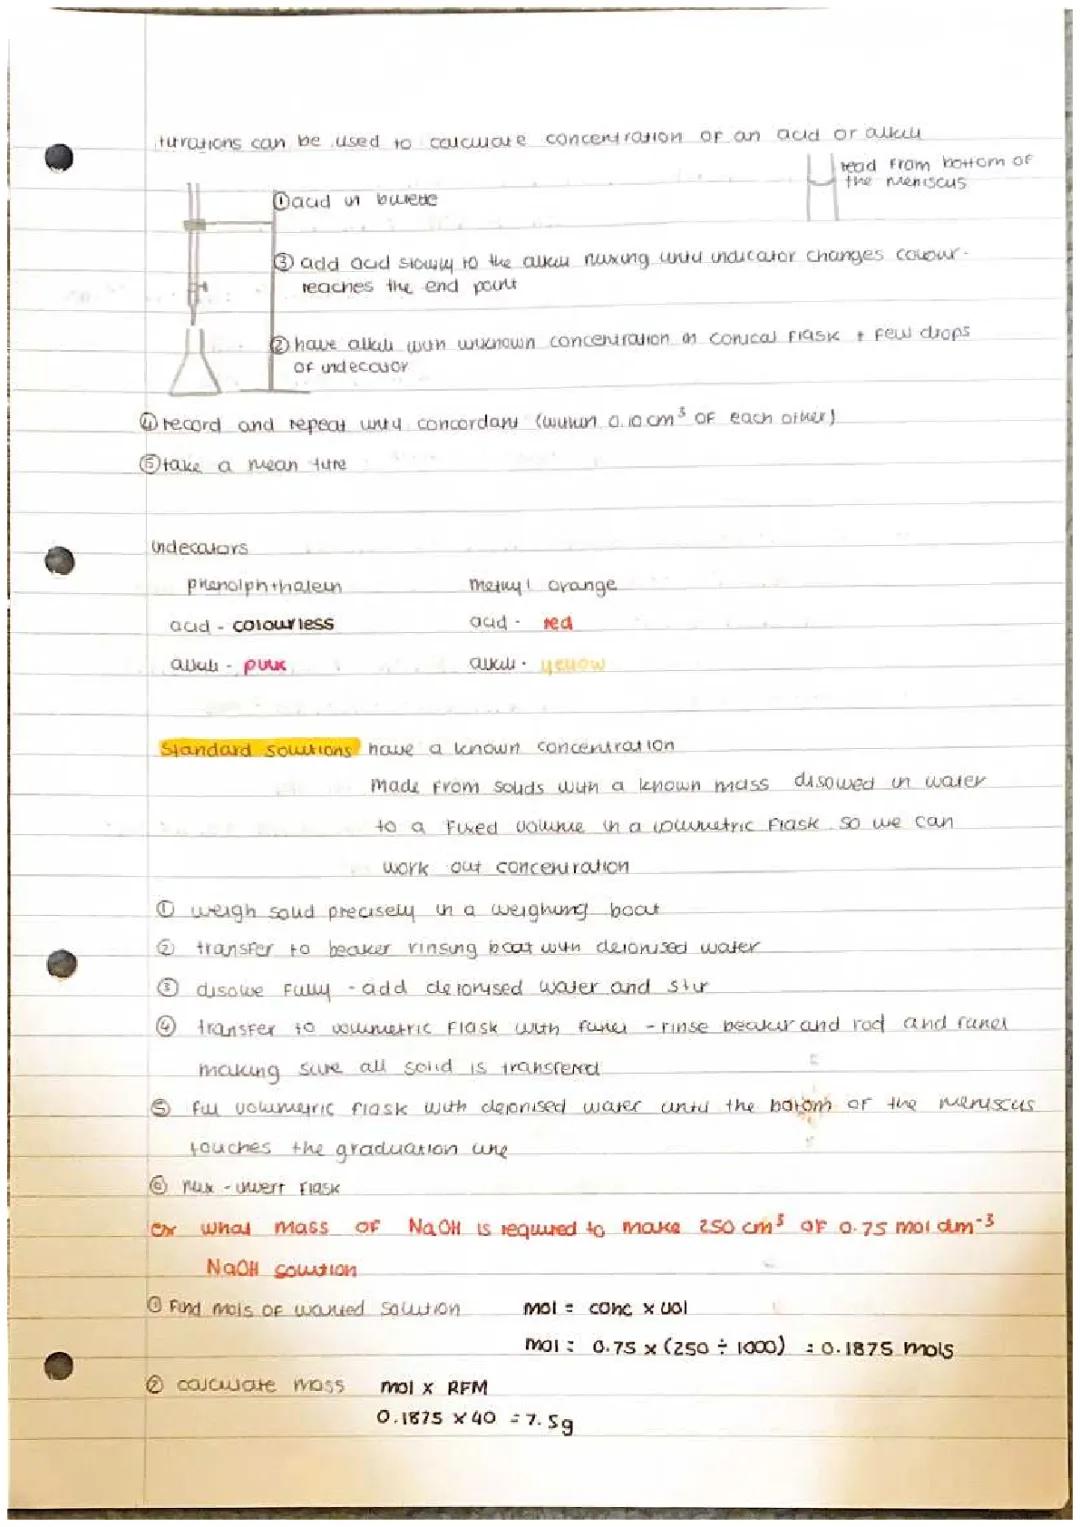 titrations can be used to calculate concentration of an acid or alkali
read from bottom of
the meniscus
① acid in burette
③ add acid slowly to the alkali mixing until indicator changes colour -
reaches the end point
② have alkali with unknown concentration in conical flask + few drops
of indecator
④ record and repeat until concordant (within 0.10cm³ of each other)
⑤ take a mean titre
indecators
phenolphthalein methyl orange
acid - colourless acid - red
alkali - pink alkali - yellow
Standard solutions have a known concentration
made from solids with a known mass disolved in water
to a fixed volume in a volumetric flask so we can
work out concentration
① weigh solid precisely in a weighing boat
② transfer to beaker rinsing boat with deionised water
③ disolve fully - add deionised water and stir
④ transfer to volumetric flask with funel - rinse beaker and rod and funel
making sure all solid is transfered
⑤ fill volumetric flask with deionised water until the bottom of the meniscus
touches the graduation line
⑥ mix - invert flask
ex what mass of NaOH is required to make 250 cm³ of 0.75 mol dm⁻³
NaOH solution
① Find mols of wanted solution mol = conc x vol
mol = 0.75 x (250 ÷ 1000) = 0.1875 mols
② calculate mass mol x RFM
0.1875 x 40 = 7.5g